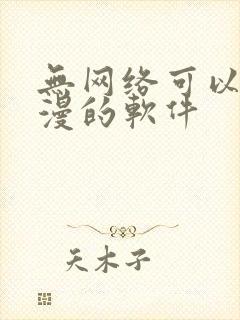 無网络可以
漫的軟件
天木子